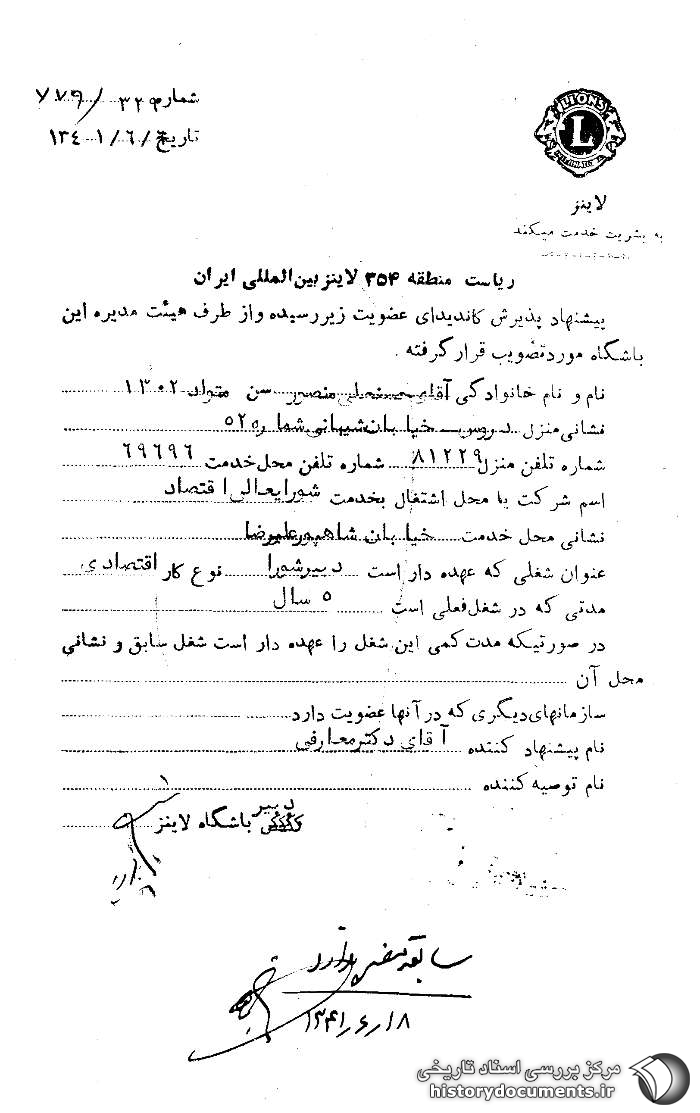 شماره ۳۲۹/۷۷۹
تاریخ ۱۳۴۱/۶/
LIONS
L
لاینز
به بشریت خدمت میکند
ریاست منطقه ۳۵۴ لاینز بین‌المللی ایران
پیشنهاد پذیرش کاندیدای عضویت زیر رسیده و از طرف هیئت مدیره این
باشگاه مورد تصویب قرار گرفته .
نام و نام خانوادگی آقای حسنعلی منصور سن متولد ۱۳۰۲
نشانی منزل دروس خیابان شیبانی شماره ۵۲
شماره تلفن منزل ۸۱۲۲۹ شماره تلفن محل خدمت ۶۹۶۹۶
اسم شرکت یا محل اشتغال بخدمت شورایعالی اقتصاد
نشانی محل خدمت خیابان شاهپور علیرضا
عنوان شغلی که عهده دار است دبیر شورا نوع کار اقتصادی
مدتی که در شغل فعلی است ۵ سال
در صورتیکه مدت کمی این شغل را عهده دار است شغل سابق و نشانی
محل آن
سازمانهای دیگری که در آنها عضویت دارد
نام پیشنهاد کننده آقای دکتر معارفی
نام توصیه کننده
دبیر باشگاه لاینز
سابقه مضر ندارد
۱۳۴۱/۶/۱۸
مرکز بررسی اسناد تاریخی
historydocuments.ir